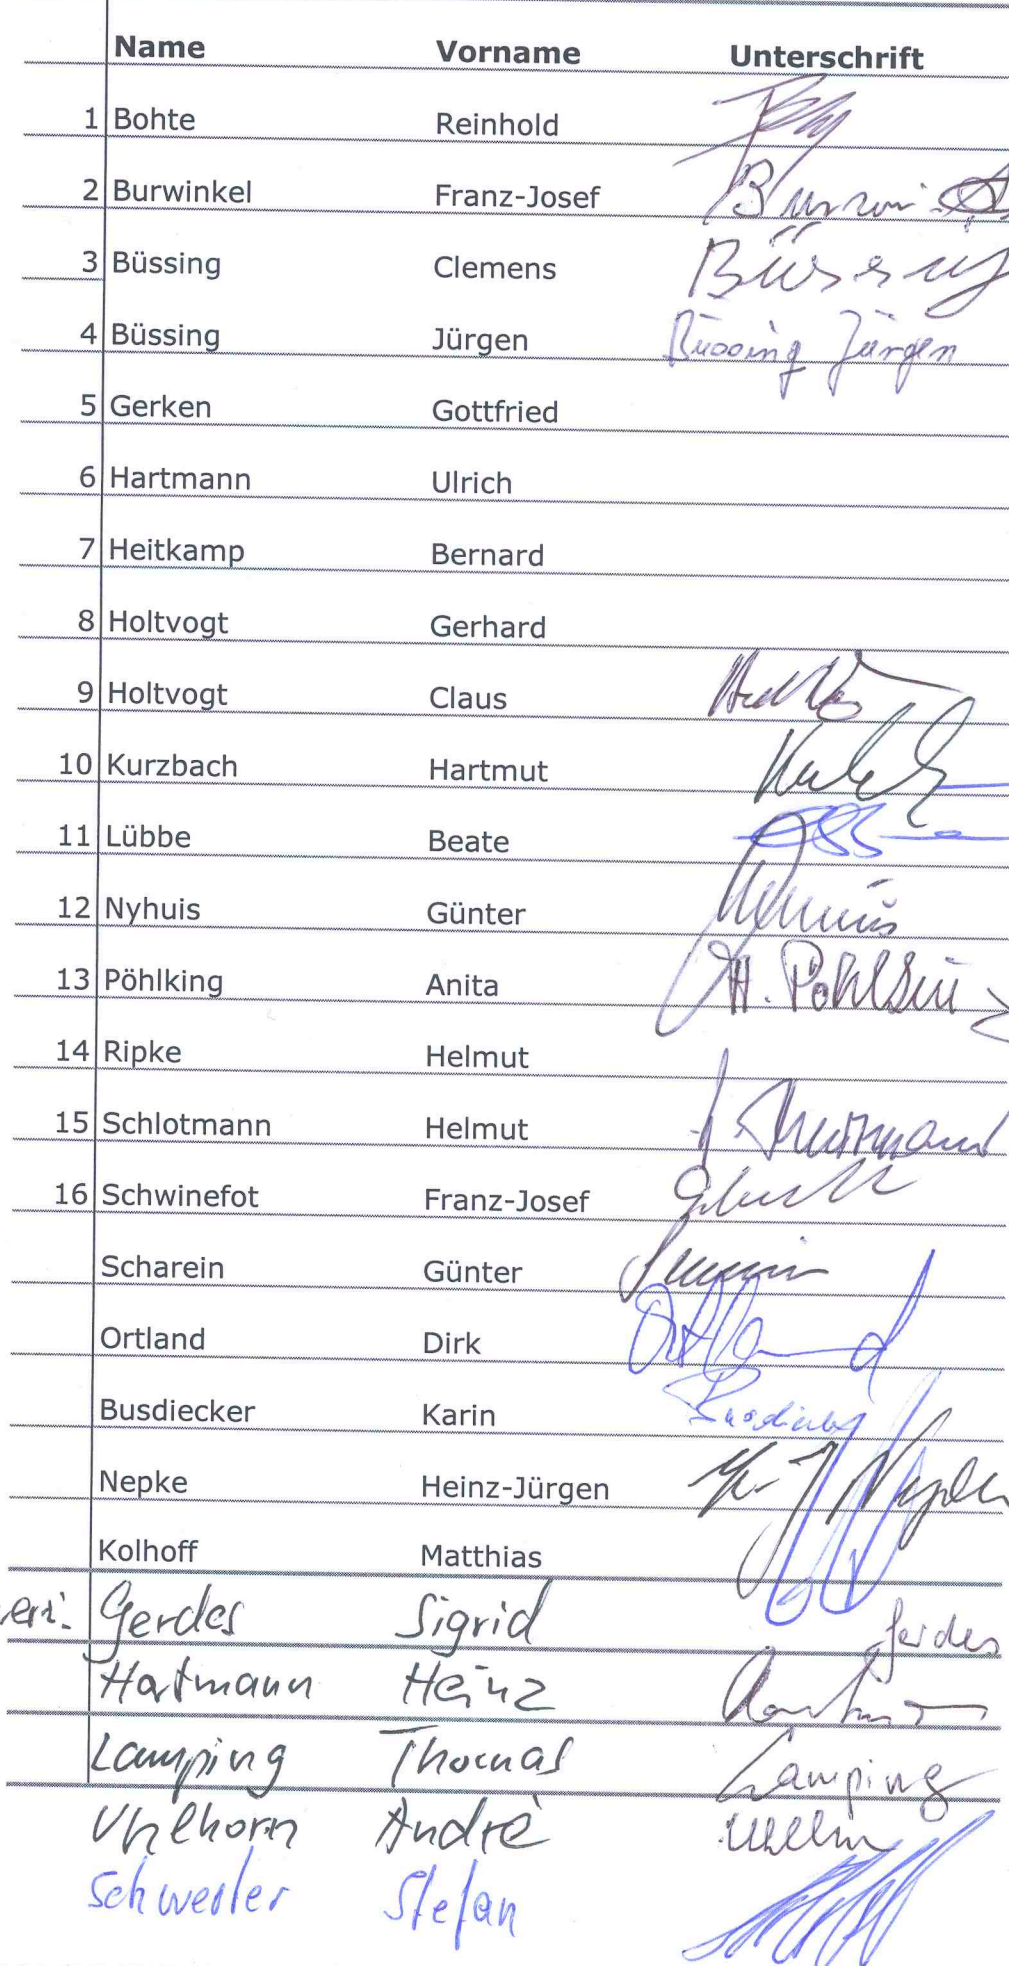 Name Vorname Unterschrift
1 Bohte Reinhold
2 Burwinkel Franz-Josef
3 Büssing Clemens Büssing
4 Büssing Jürgen Büssing Jürgen
5 Gerken Gottfried
6 Hartmann Ulrich
7 Heitkamp Bernard
8 Holtvogt Gerhard
9 Holtvogt Claus
10 Kurzbach Hartmut
11 Lübbe Beate
12 Nyhuis Günter
13 Pöhlking Anita A. Pöhlking
14 Ripke Helmut
15 Schlotmann Helmut
16 Schwinefot Franz-Josef
Scharein Günter
Ortland Dirk Ortland
Busdiecker Karin Busdiecker
Nepke Heinz-Jürgen
Kolhoff Matthias
Gerdes Sigrid Gerdes
Hartmann Heinz
Lamping Thomas Lamping
Uhlhorn Andrè
Stefan